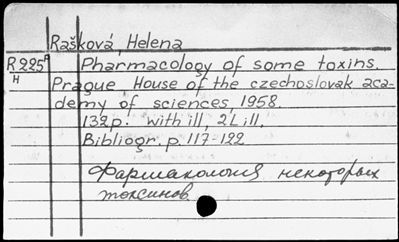 Rašková, Helena
R225P Pharmacology of some toxins.
H
Prague, House of the czechoslovak aca-
demy of sciences, 1958.
132p. with ill, 2 L ill.
Bibliogr, p. 117-122
Фармакология некоторых
токсинов